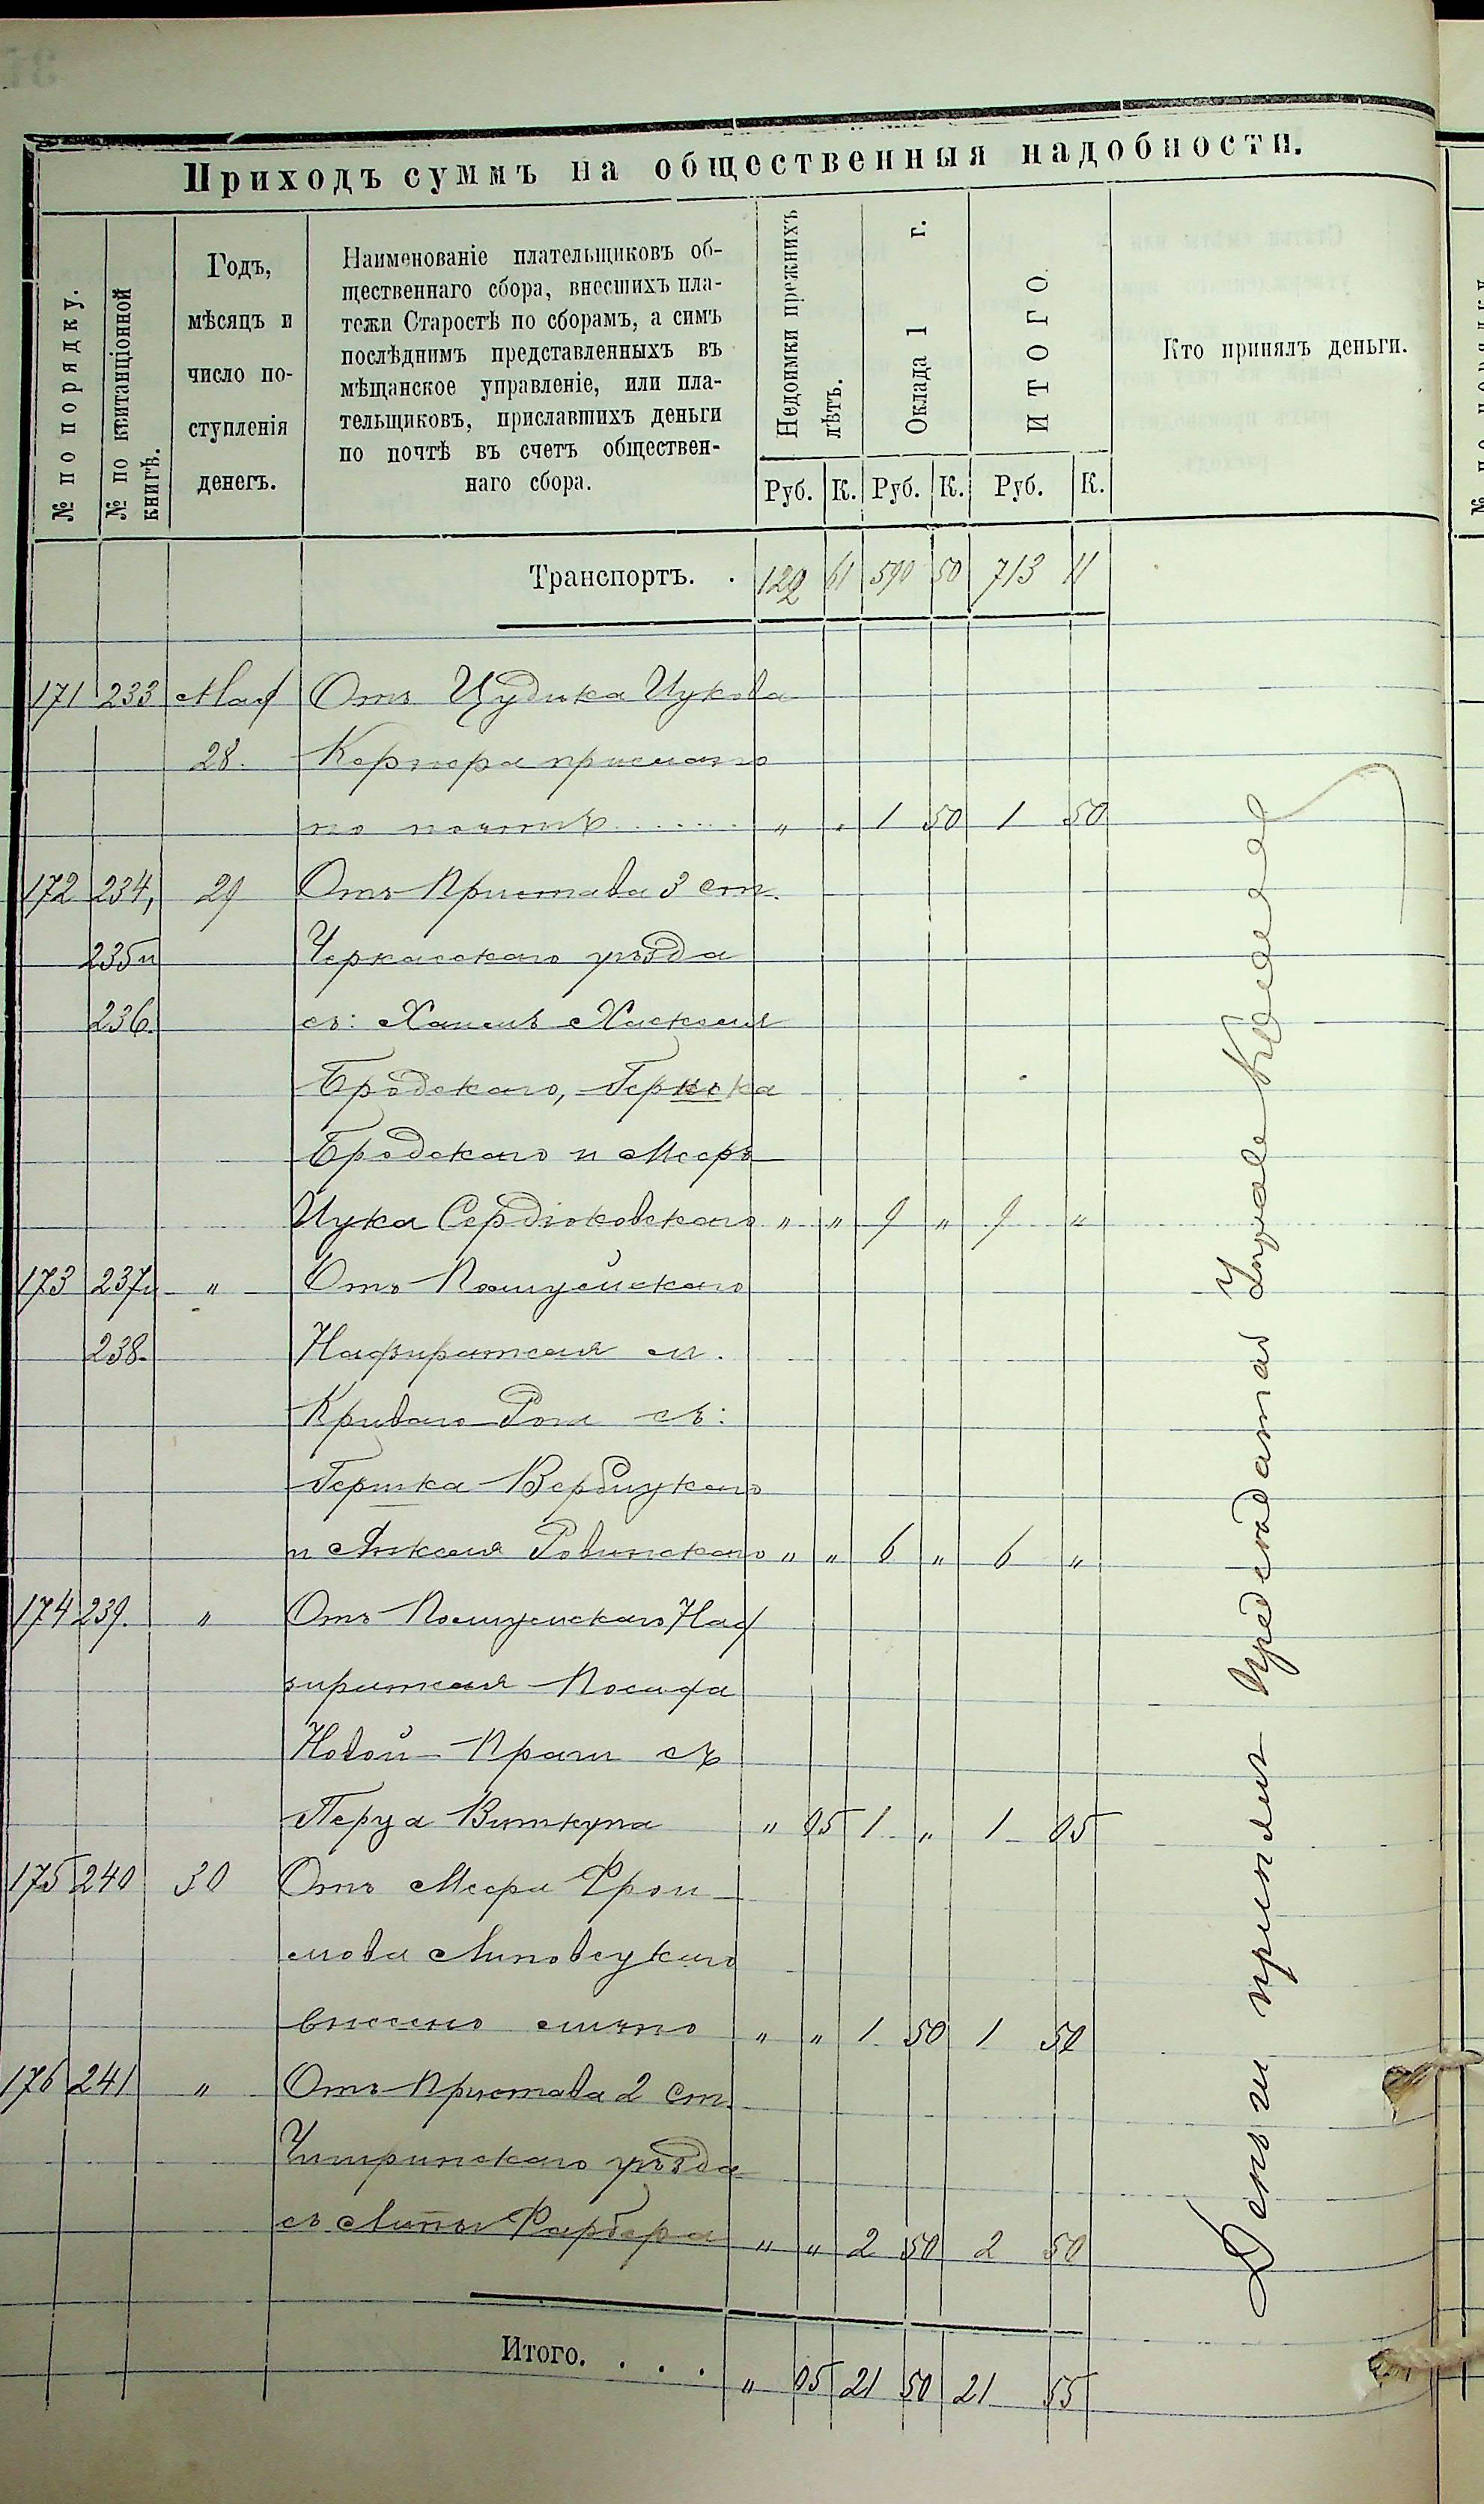 Приходъ суммъ на общественныя надобности.
№ по порядку.
№ по квитанціонной книгѣ.
Годъ,
мѣсяцъ и
число по-
ступленія
денегъ.
Наименованіе плательщиковъ об-
щественнаго сбора, внесшихъ пла-
тежи Старостѣ по сборамъ, а симъ
послѣднимъ представленныхъ въ
мѣщанское управленіе, или пла-
тельщиковъ, приславшихъ деньги
по почтѣ въ счетъ обществен-
наго сбора.
Недоимки прежнихъ лѣтъ.
Оклада 1 г.
ИТОГО.
Кто принялъ деньги.
Руб. К. Руб. К. Руб. К.
Транспортъ. . 122 61 590 50 713 11
171 233 Мая Отъ Цудика Ицкова
28. Кернера прислано
по почтѣ . . . . . . " " 1 50 1 50
172 234, 29 Отъ Пристава 3 ст.
235 и Черкасскаго уѣзда
236. съ: Хаима Хаскеля
Бродскаго, Гершка
Бродскаго и Меера
Ицка Сердюковскаго " " 9 " 9 "
173 237 и " Отъ Полицейскаго
238. Надзирателя м.
Криваго-Рога съ:
Гершка Вербицкаго
и Анкеля Ровинскаго " " 6 " 6 "
174 239. " Отъ Полицейскаго Над
зирателя Посада
Новой-Праги съ
Перца Виткупа " 05 1 " 1 05
175 240 30 Отъ Меера Фрои-
мова Липовецкаго
внесено лично " " 1 50 1 50
176 241 " Отъ Пристава 2 ст.
Чигринскаго уѣзда
съ Липы Фарбера " " 2 50 2 50
Итого. . . . " 05 21 50 21 55
Деньги принялъ Предсѣдатель